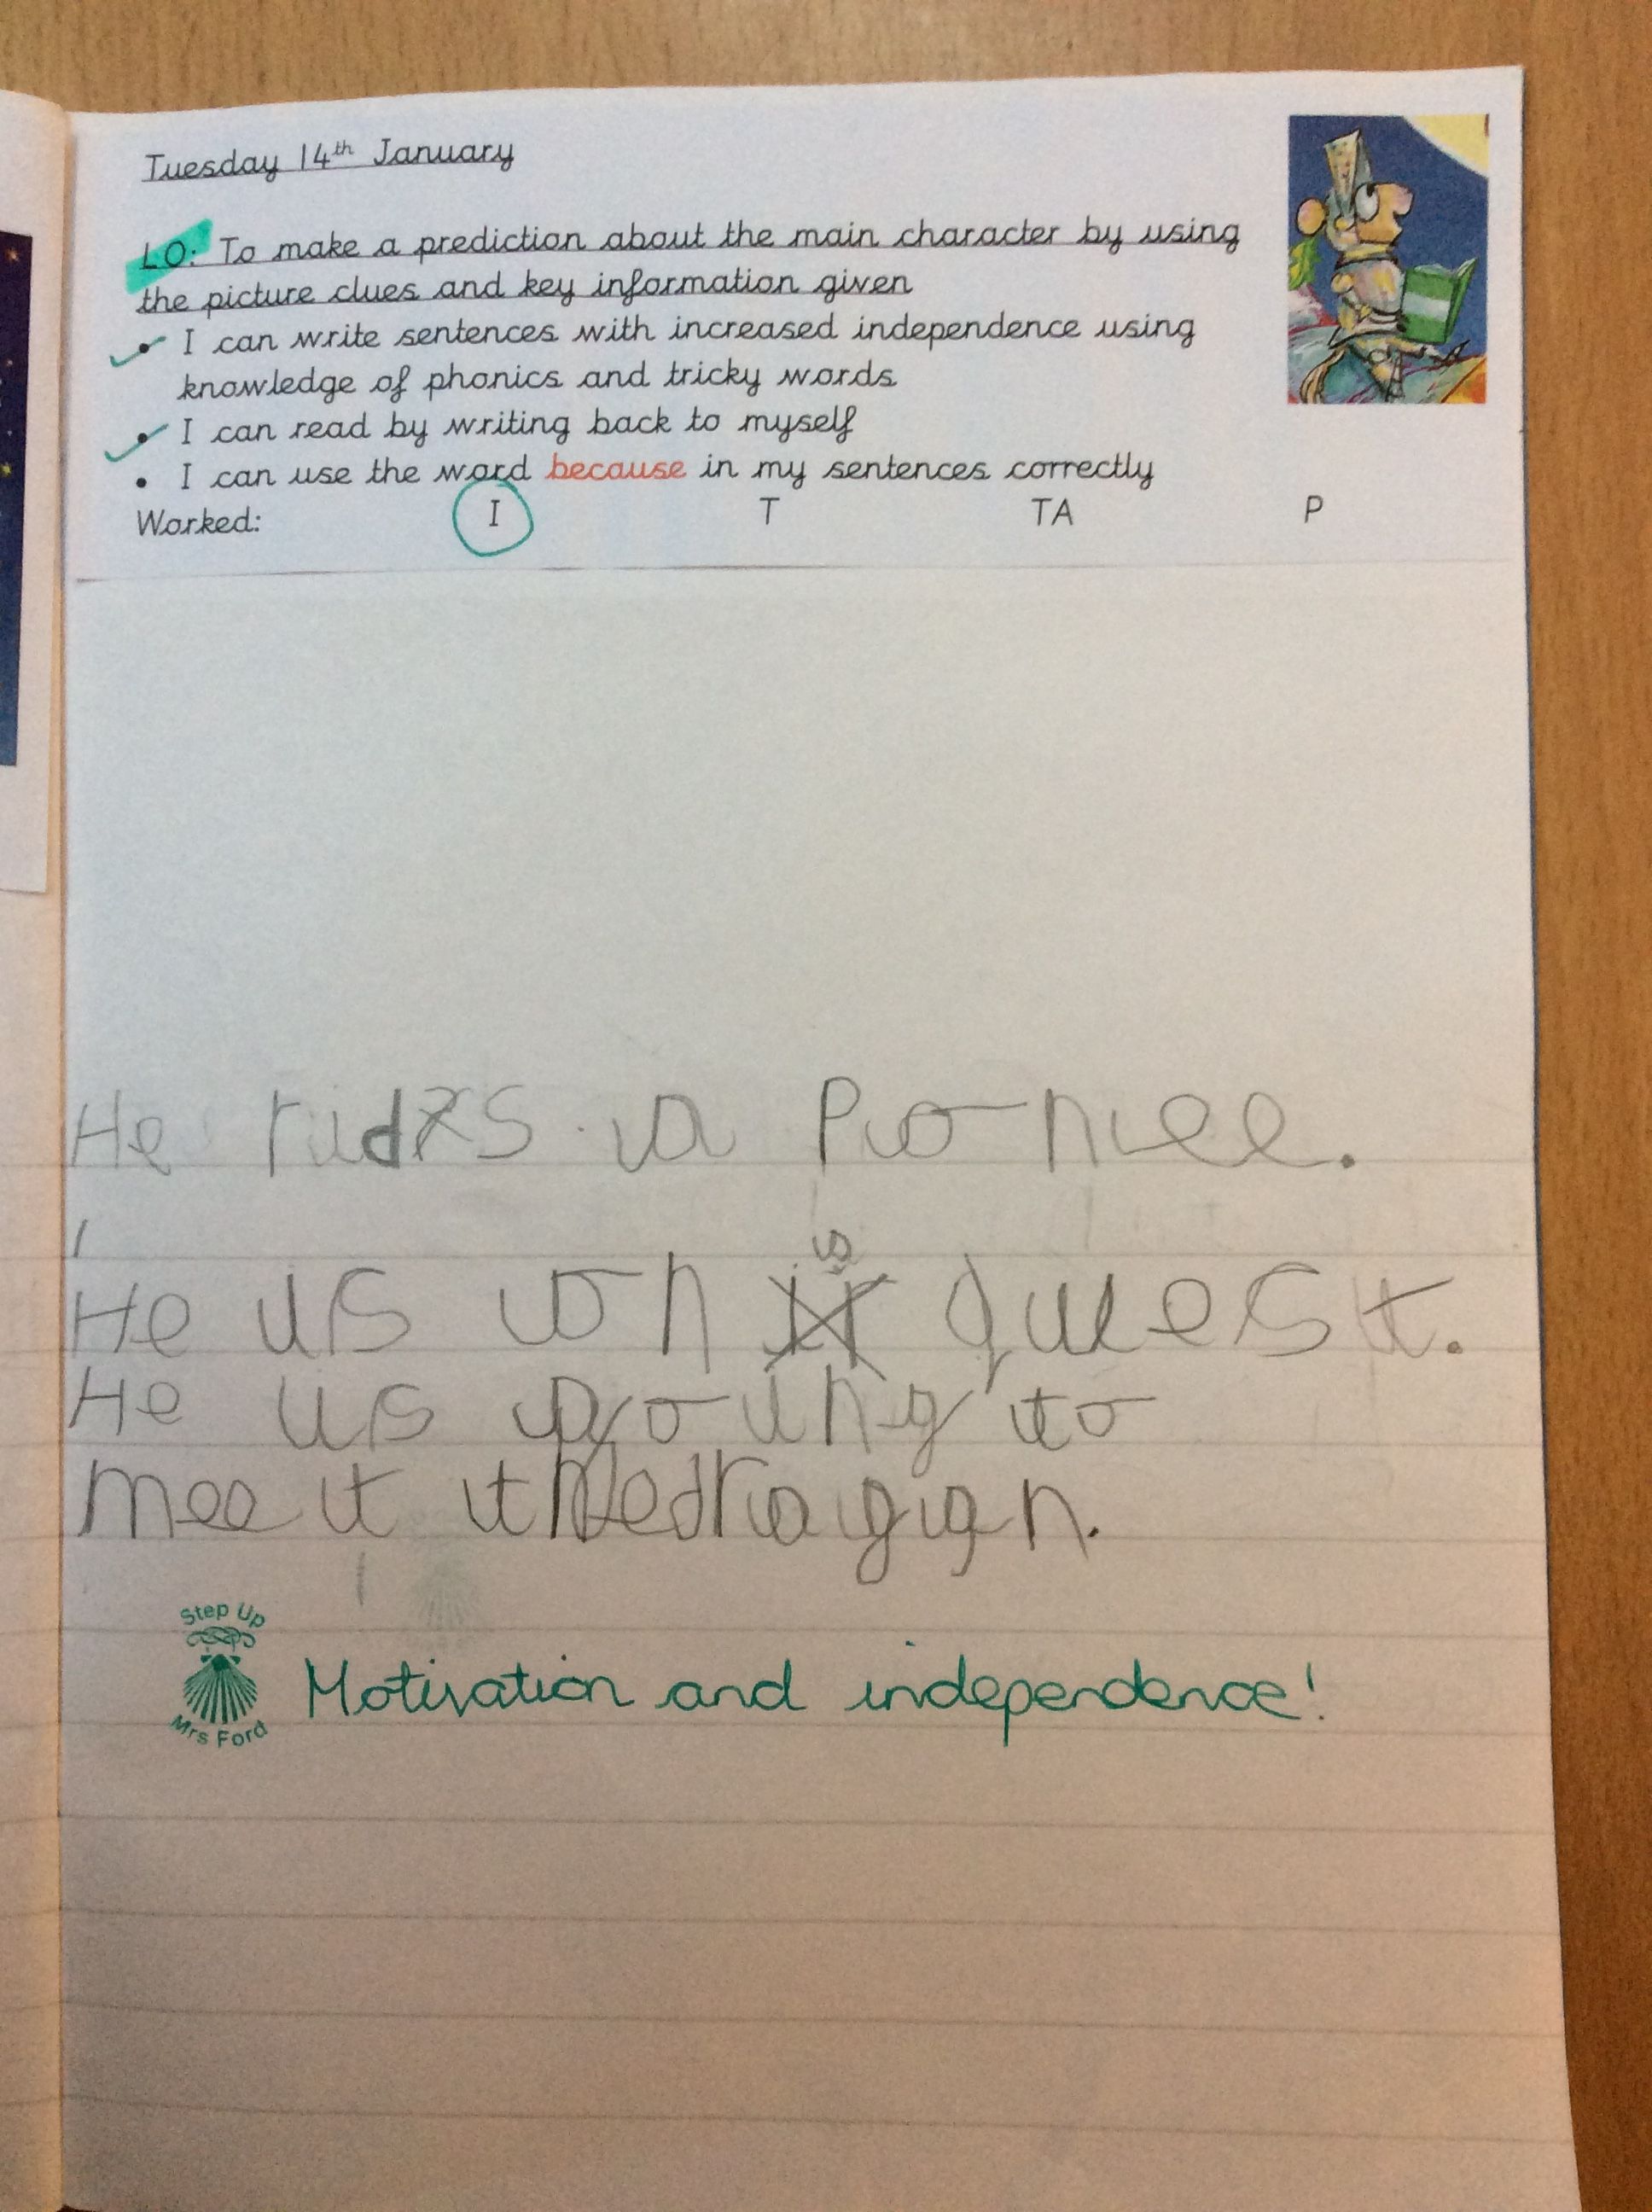 Tuesday 14th January
LO: To make a prediction about the main character by using
the picture clues and key information given
• I can write sentences with increased independence using
knowledge of phonics and tricky words
• I can read by writing back to myself
• I can use the word because in my sentences correctly
Worked: I T TA P
He rids a Ponee.
He is on quest.
He is going to
meet thedragan.
Step Up
Mrs Ford
Motivation and independence!